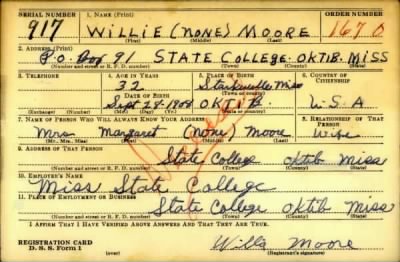 SERIAL NUMBER 1. NAME (Print) ORDER NUMBER
917 WILLIE (NONE) MOORE 1670
(First) (Middle) (Last)
2. ADDRESS (Print)
P.O. Box 97 STATE COLLEGE. OKTIB. MISS
(Number and street or R. F. D. number) (Town) (County) (State)
3. TELEPHONE 4. AGE IN YEARS 5. PLACE OF BIRTH 6. COUNTRY OF CITIZENSHIP
32 Starkville Miss
DATE OF BIRTH (Town or county)
Sept 28-1908 OKTIB U.S.A
(Exchange) (Number) (Mo.) (Day) (Yr.) (State or country)
7. NAME OF PERSON WHO WILL ALWAYS KNOW YOUR ADDRESS 8. RELATIONSHIP OF THAT PERSON
Mrs Margaret (None) Moore Wife
(Mr., Mrs., Miss) (First) (Middle) (Last)
9. ADDRESS OF THAT PERSON
State College Oktib Miss
(Number and street or R. F. D. number) (Town) (County) (State)
10. EMPLOYER'S NAME
Miss State College
11. PLACE OF EMPLOYMENT OR BUSINESS
State College Oktib Miss
(Number and street or R. F. D. number) (Town) (County) (State)
I AFFIRM THAT I HAVE VERIFIED ABOVE ANSWERS AND THAT THEY ARE TRUE.
REGISTRATION CARD
D. S. S. Form 1
Willie Moore
(Registrant's signature)